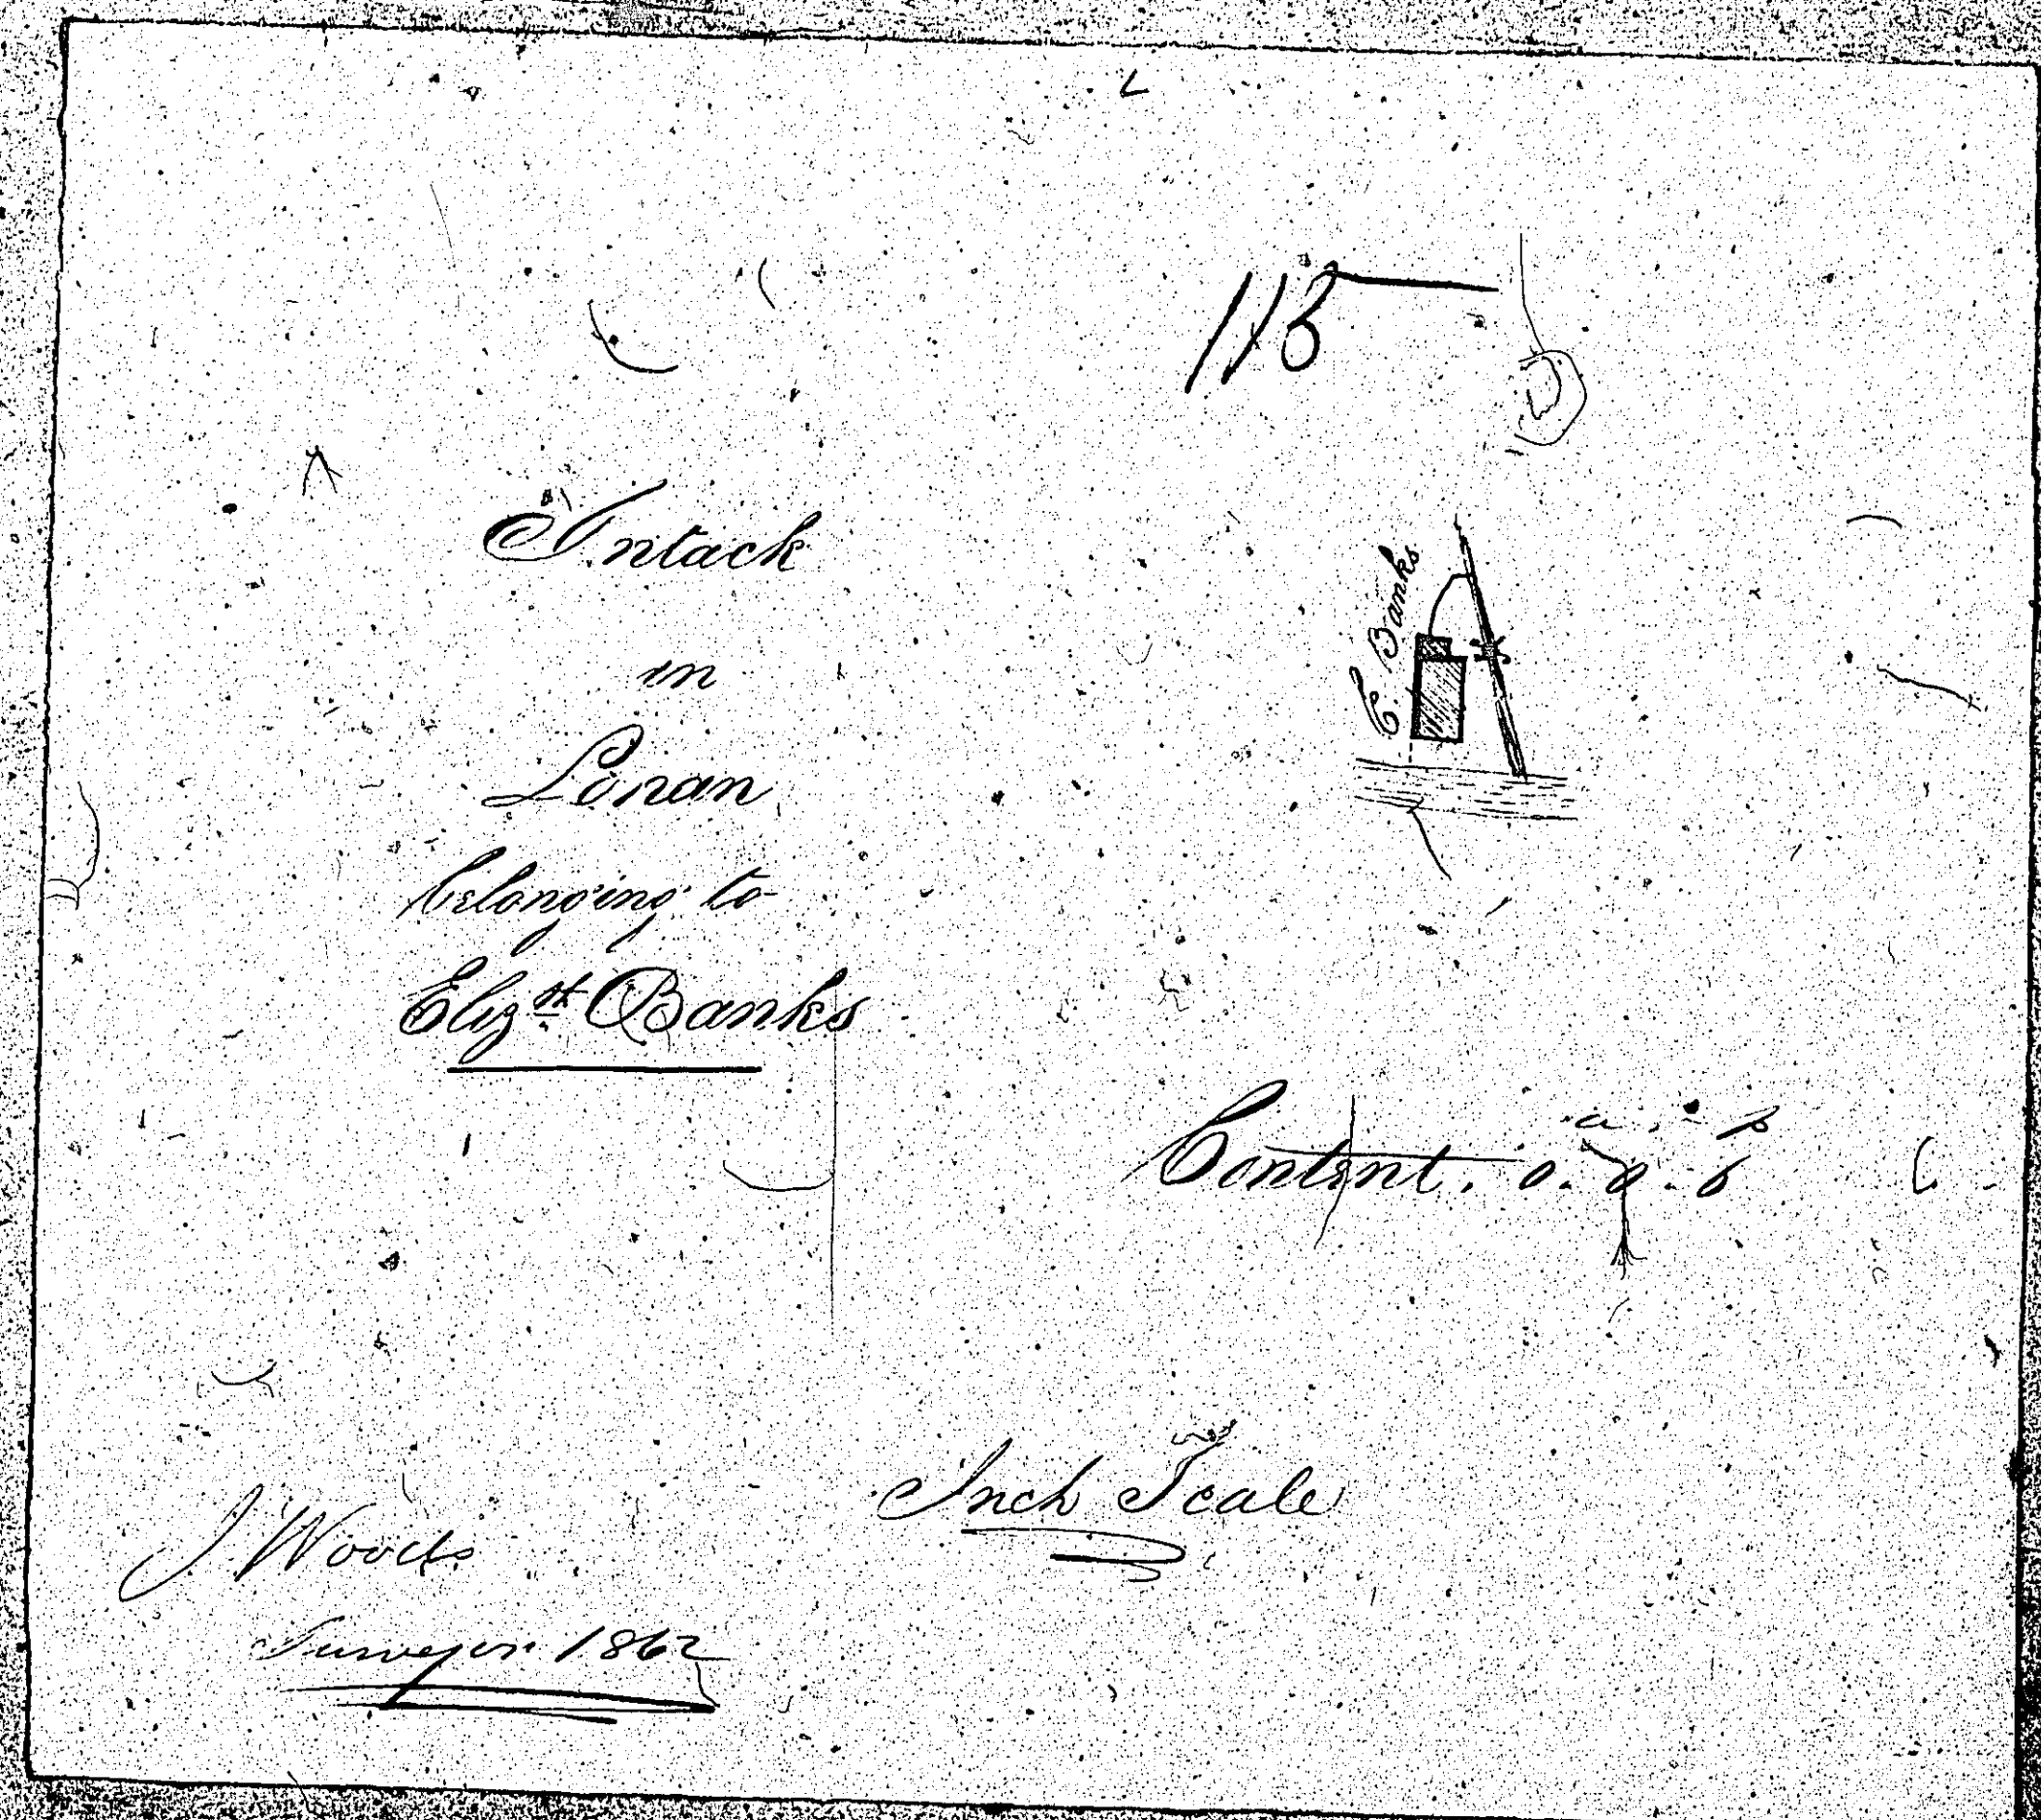 115
Intack
in
Lonan
belonging to
Eliz.th Banks
E. Banks
a p
Content. 0.0.6
Inch Scale
J. Woods
Surveyor 1862